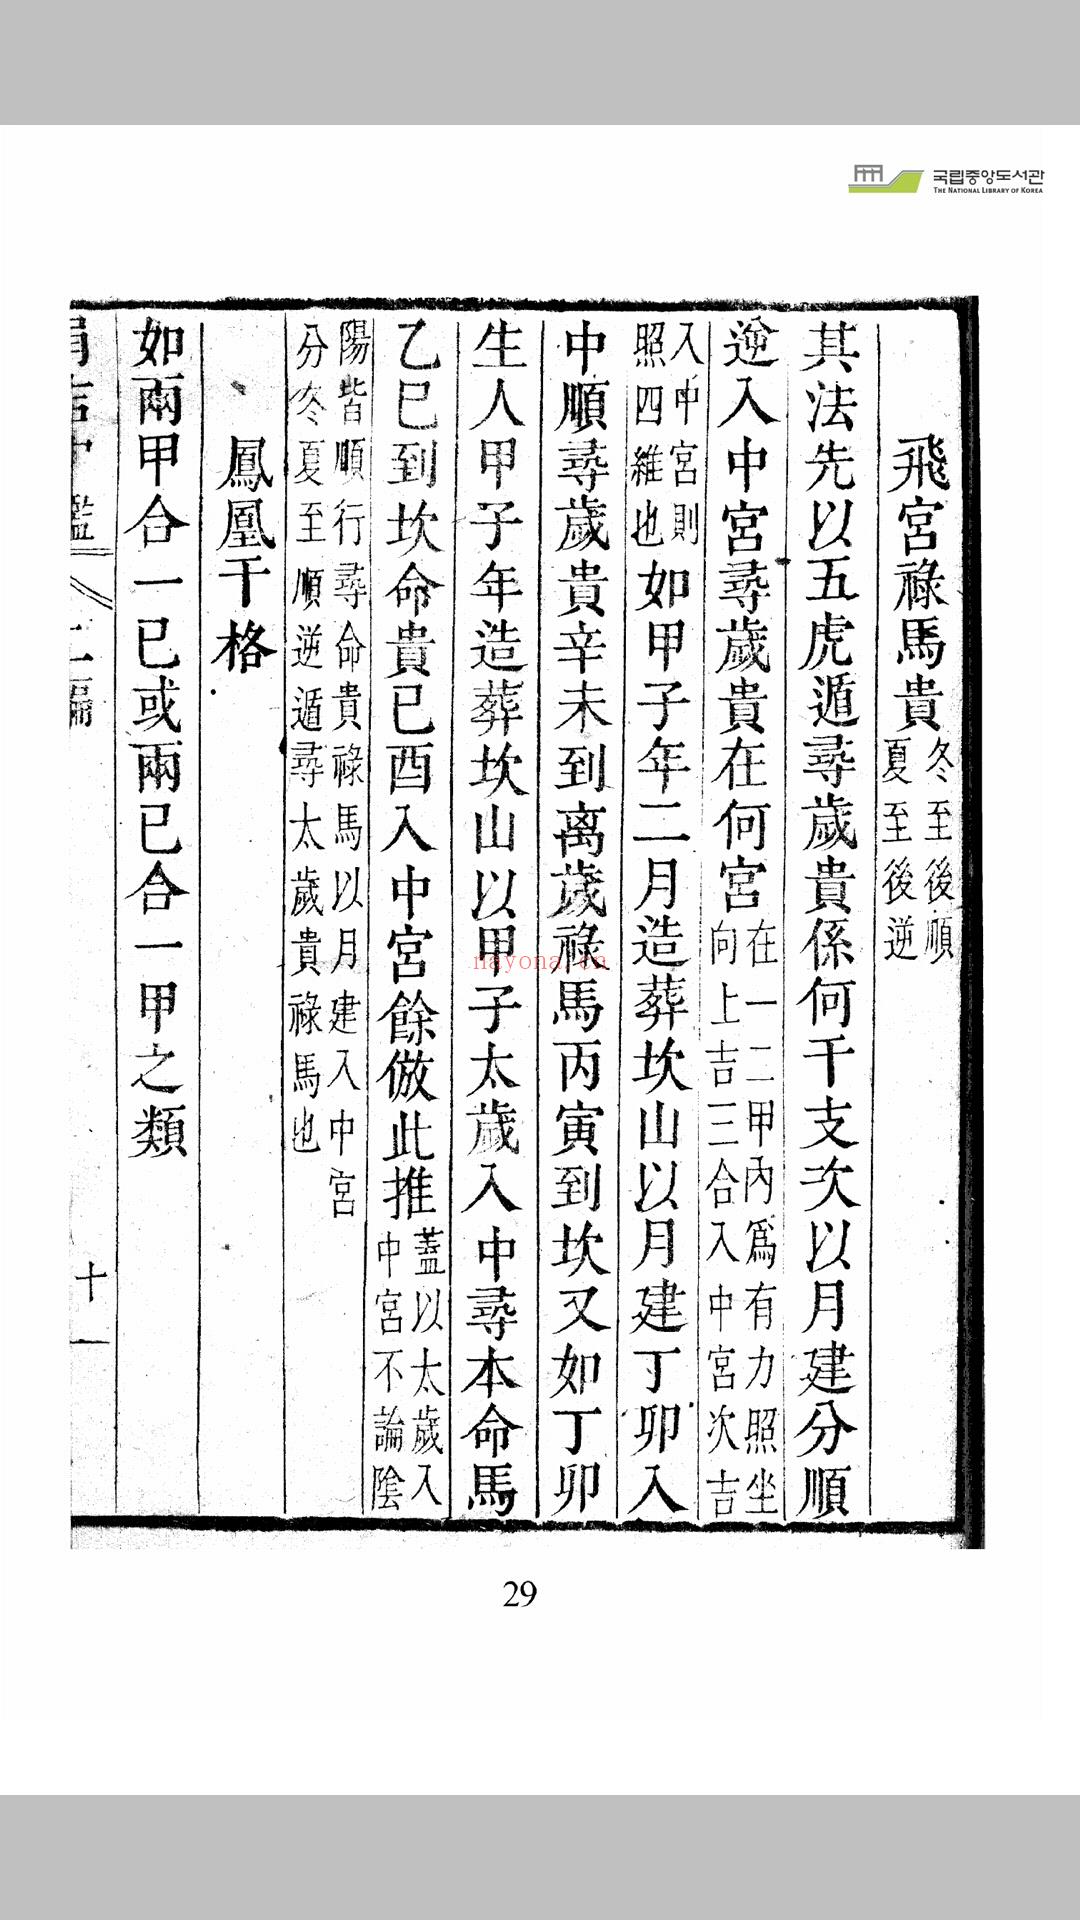 국립중앙도서관
THE NATIONAL LIBRARY OF KOREA
飛宮祿馬貴冬至後順夏至後逆
其法先以五虎遁尋歲貴係何干支次以月建分順
逆入中宮尋歲貴在何宮在一二甲內爲有力照坐向上吉三合入中宮次吉
入中宮則照四維也如甲子年二月造葬坎山以月建丁卯入
中順尋歲貴辛未到离歲祿馬丙寅到坎又如丁卯
生人甲子年造葬坎山以甲子太歲入中尋本命馬
乙巳到坎命貴已酉入中宮餘倣此推蓋以太歲入中宮不論陰
陽皆順行尋命貴祿馬以月建入中宮分冬夏至順逆遁尋太歲貴祿馬也
鳳凰干格
如兩甲合一已或兩已合一甲之類
十一
nayona.cn
29